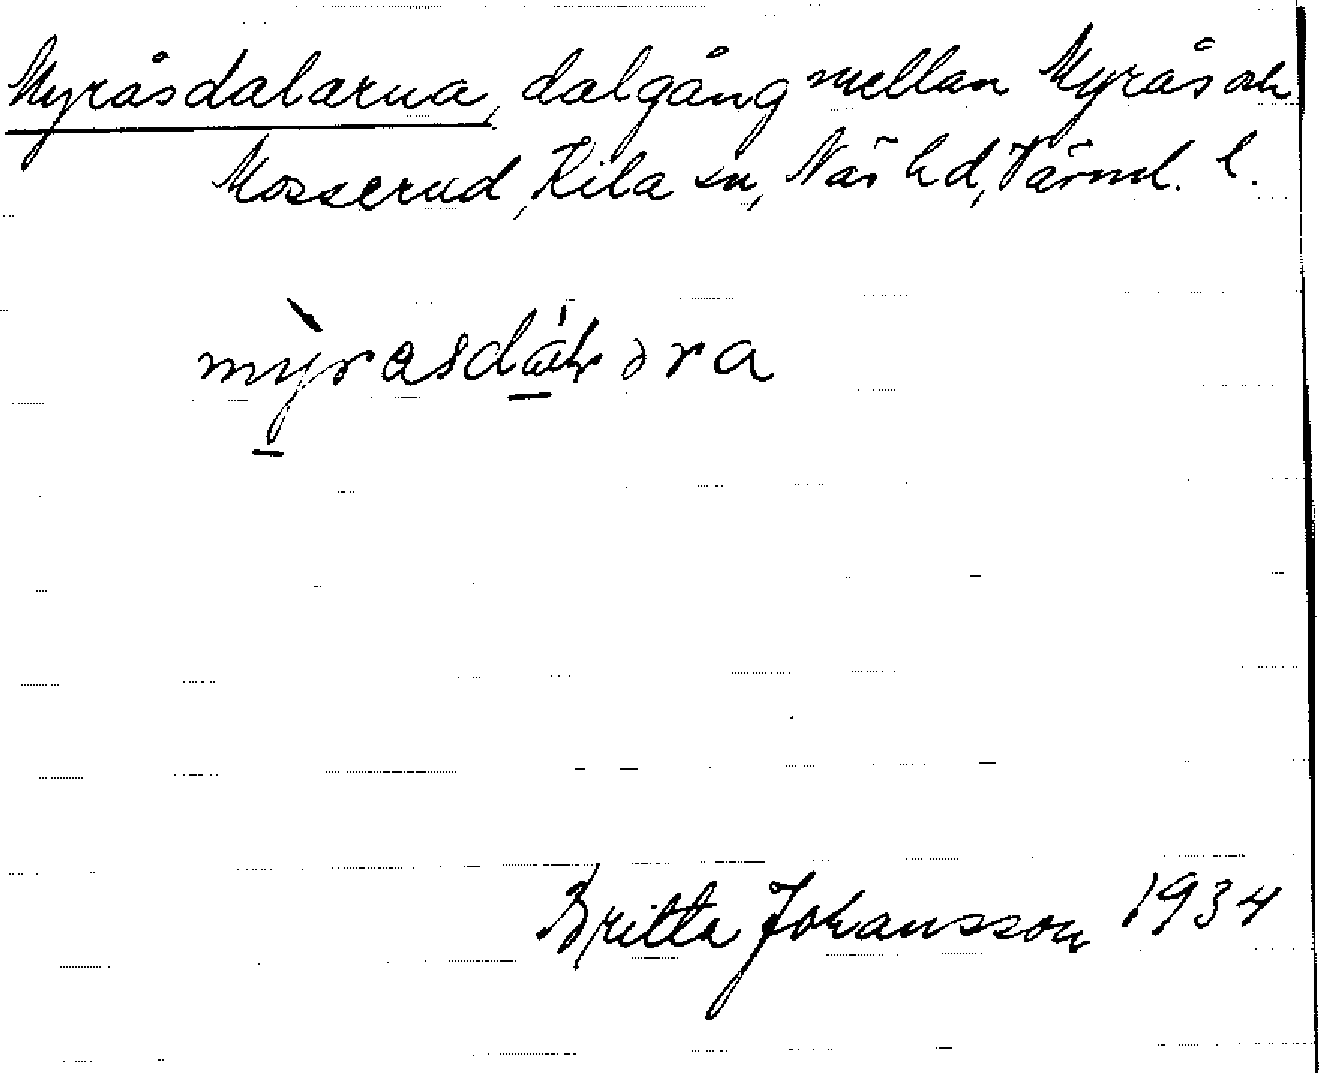 Myråsdalarna, dalgång mellan Myrås och
Mosserud, Kila sn, Näs hd, Värml. l.
Britta Johansson 1934